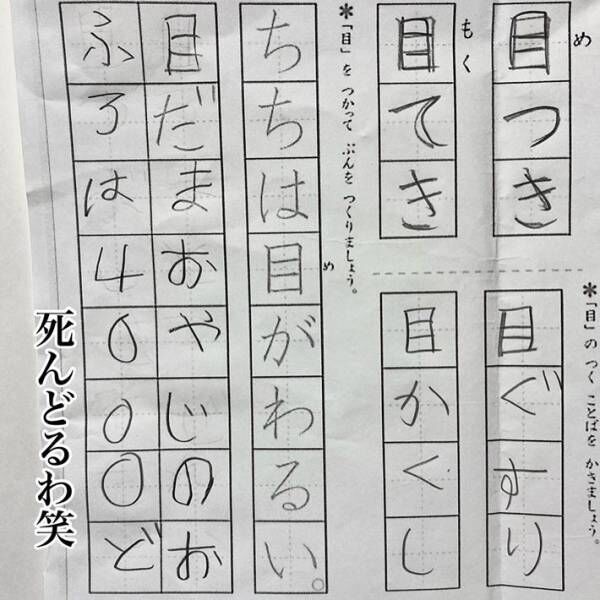 め
目つき
もく
目てき
*「目」の つく ことばを かきましょう。
目ぐすり
目かくし
*「目」を つかって ぶんを つくりましょう。
め
ちちは目がわるい。
目だまおやじのお
ふろは4000ど
死んどるわ笑